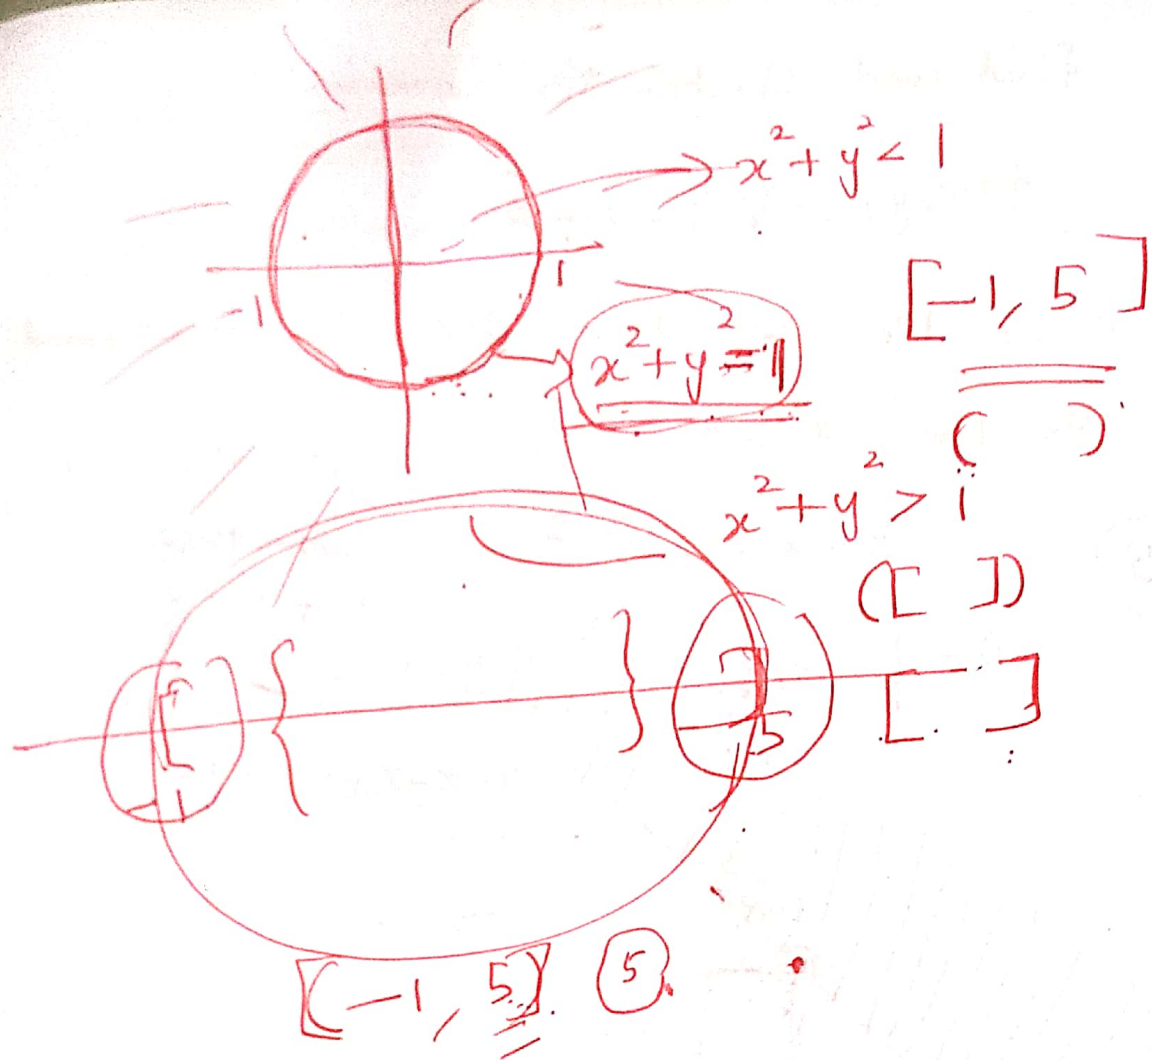 x² + y² < 1
-1
1
[-1, 5]
x² + y² = 1
( )
x² + y² > 1
([ ])
{ }
[ ]
-1
5
[ ]
[(-1, 5)]
5